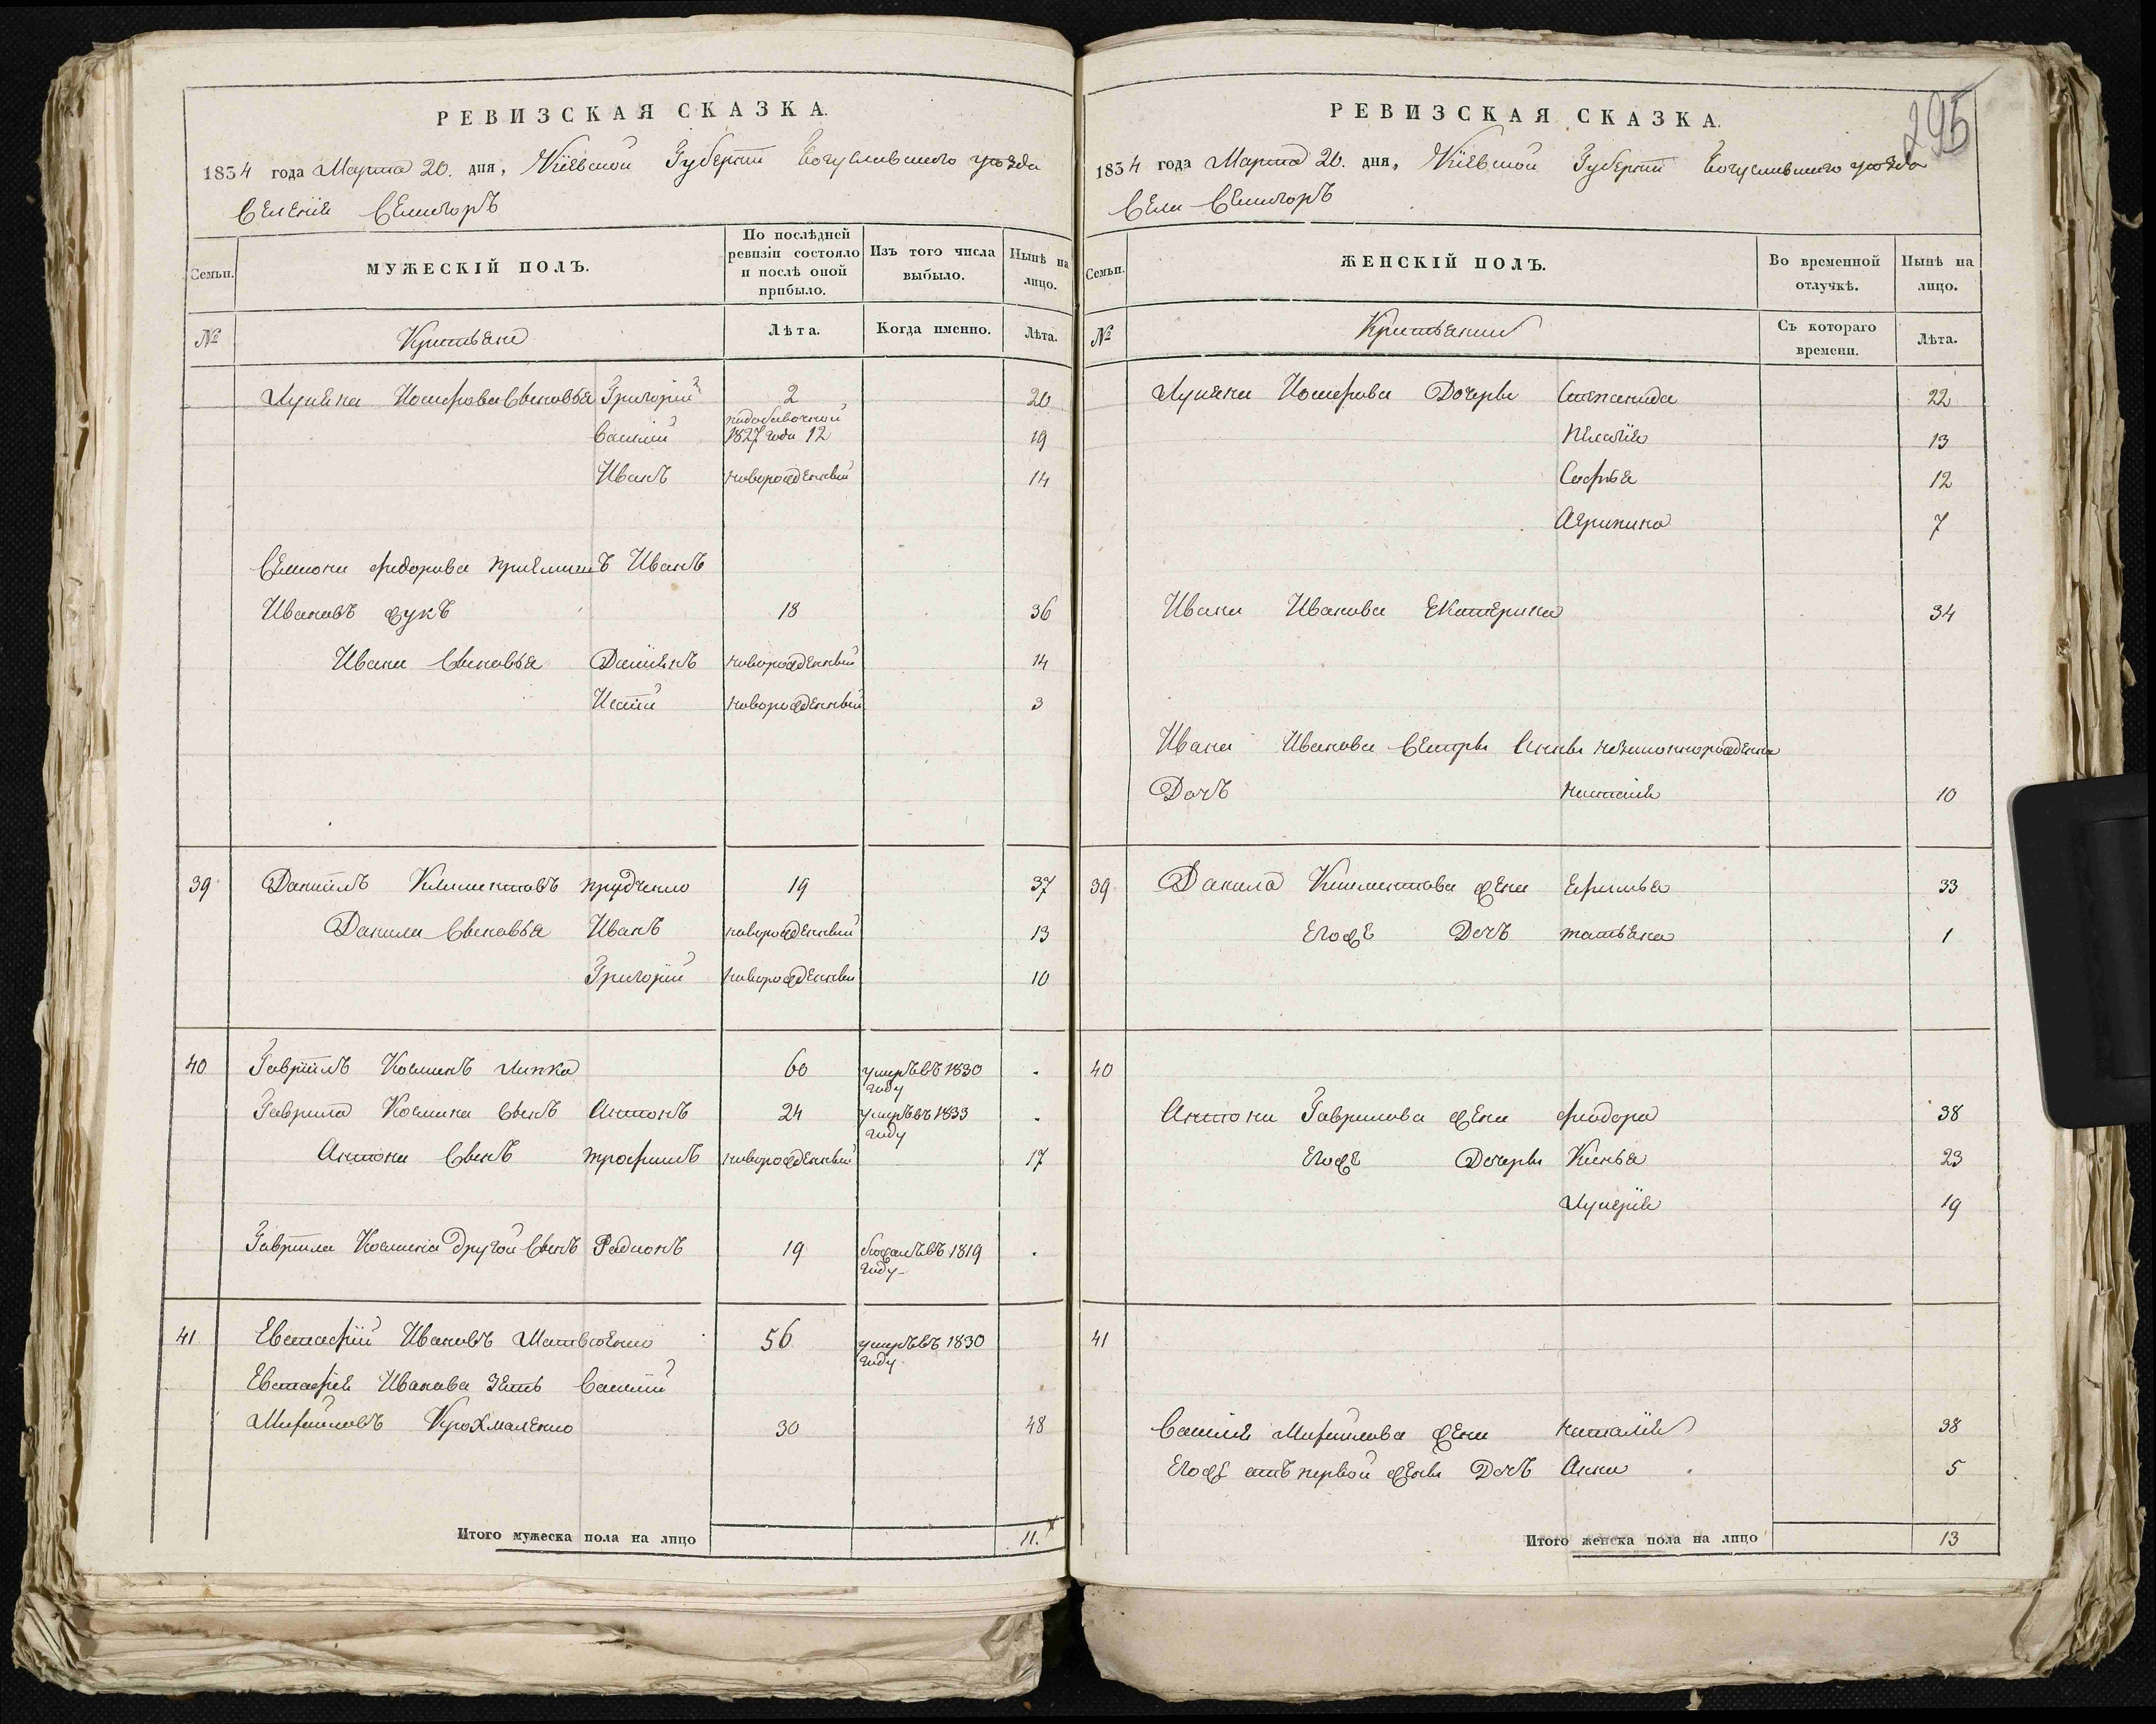 295
РЕВИЗСКАЯ СКАЗКА.
1834 года Марта 20. дня, Кіевской Губерніи Богуславского уѣзда
Селенія Семигоръ
Семьи.
МУЖЕСКІЙ ПОЛЪ.
По послѣдней ревизіи состояло и послѣ оной прибыло.
Изъ того числа выбыло.
Нынѣ на лицо.
№
Крестьяне
Лѣта.
Когда именно.
Лѣта.
Лукяна Иосифова Сыновья Григорій 2 20
Василій подобавочной 1827 года 12 19
Иванъ новорожденный 14
Семиона Федорова приемышъ Иванъ
Ивановъ Жукъ 18 36
Ивана Сыновья Даміянъ новорожденный 14
Игнатій новорожденный 3
39 Даніилъ Климентовъ Прудченко 19 37
Данила Сыновья Иванъ новорожденный 13
Григорій новорожденный 10
40 Гавріилъ Косминъ Липка 60 умеръ въ 1830 году
Гаврила Космина Сынъ Антонъ 24 умеръ въ 1833 году
Антона Сынъ Трофимъ новорожденный 17
Гаврила Космина другой Сынъ Радионъ 19 бѣжалъ въ 1819 году
41. Евстафій Ивановъ Матвѣенко 56 умеръ въ 1830 году
Евстафія Иванова Зять Василій
Михайловъ Крохмаленко 30 48
Итого мужеска пола на лицо 11.
РЕВИЗСКАЯ СКАЗКА.
1834 года Марта 20. дня, Кіевской Губерніи Богуславского уѣзда
Села Семигоръ
Семьи.
ЖЕНСКІЙ ПОЛЪ.
Во временной отлучкѣ.
Нынѣ на лицо.
№
Крестьянки
Съ котораго времени.
Лѣта.
Лукяна Иосифова Дочери Степанида 22
Пелагія 13
Софья 12
Агрипина 7
Ивана Иванова Екатерина 34
Ивана Иванова Сестры Анны незаконнорожденна
Дочъ Наталія 10
39 Данила Климентова жена Ефимья 33
Егоже Дочъ Татьяна 1
40
Антона Гаврилова жена Феодора 38
Егоже Дочери Ксенья 23
Лукерія 19
41
Василія Михайлова жена Наталія 38
Егоже отъ первой жены Дочъ Анна 5
Итого женска пола на лицо 13